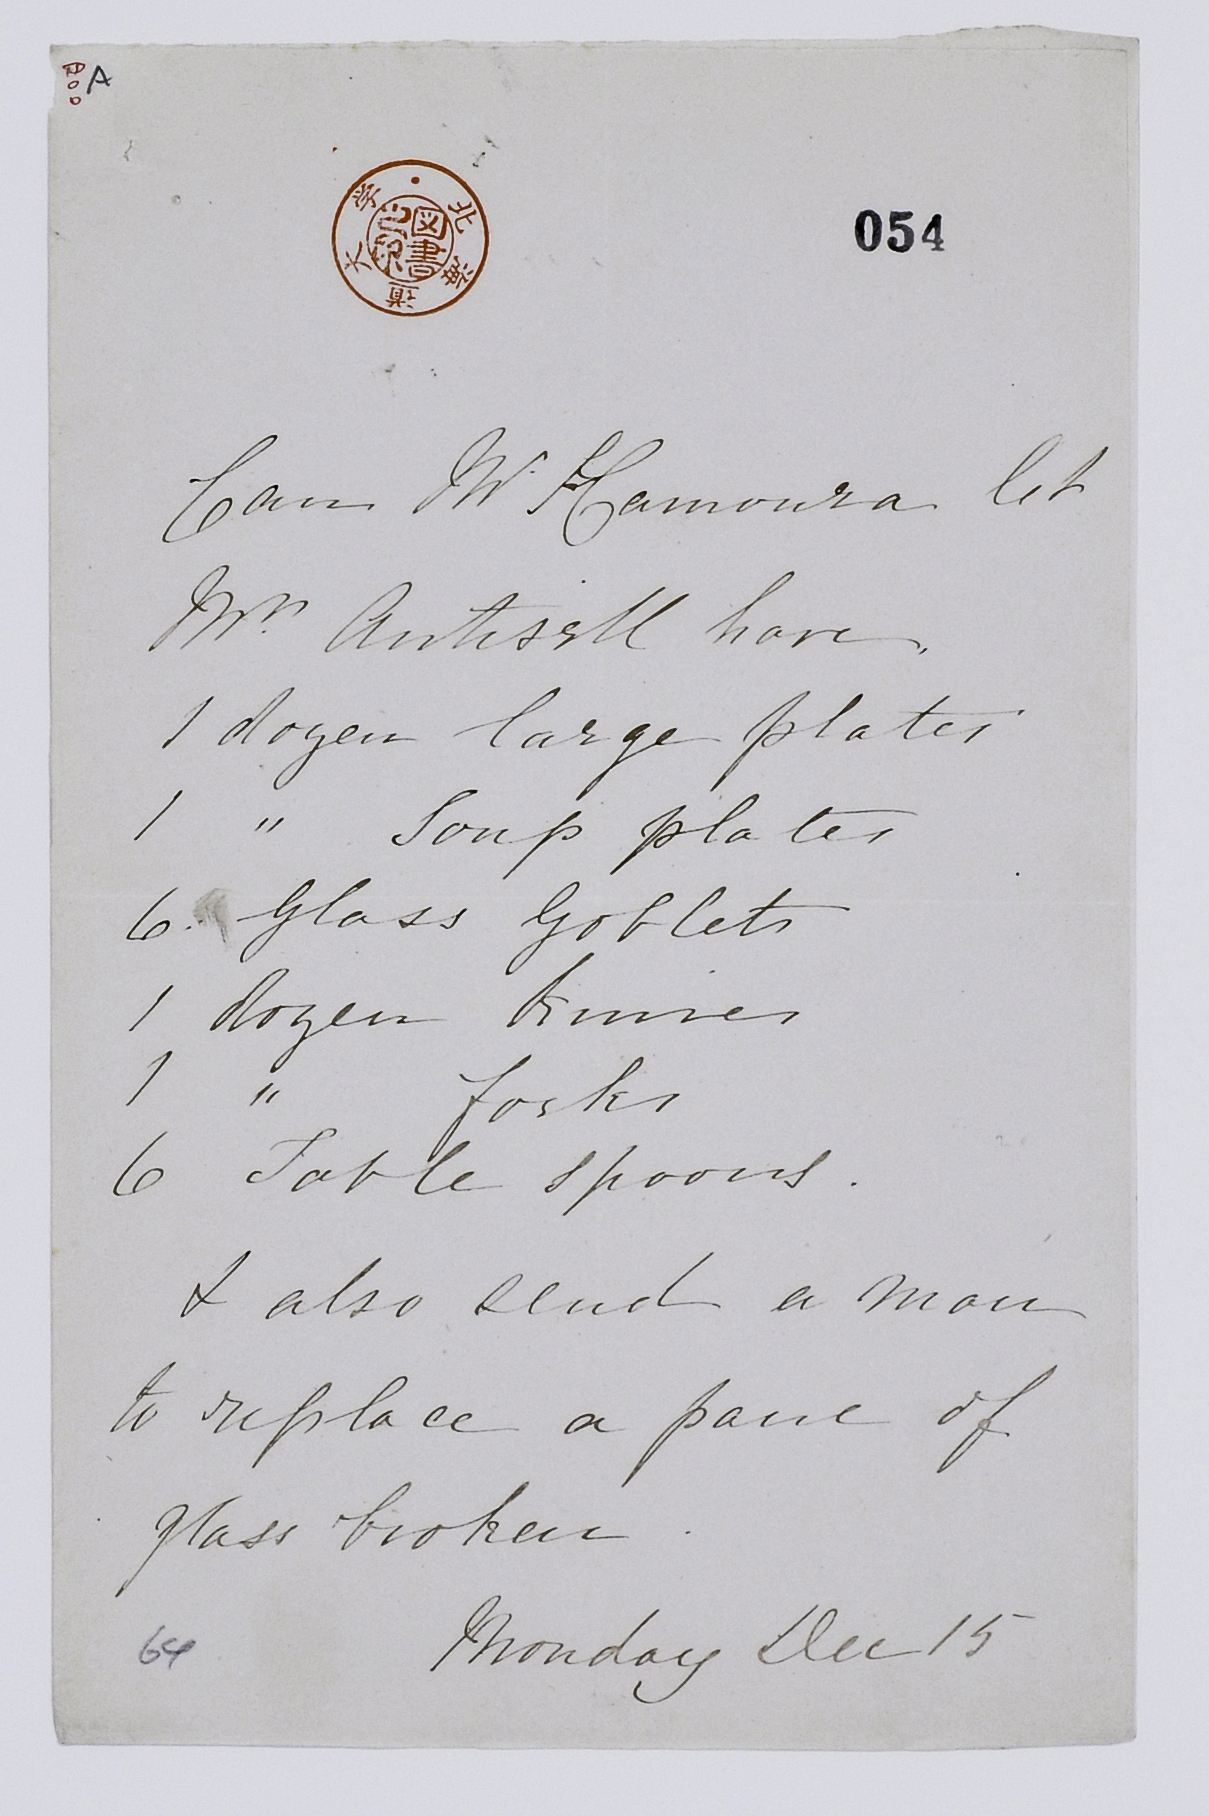 A
北海道大学
図書
054
Can Mr. Hamoura let
Mrs. Antisell have.
1 dozen large plates
1 " Soup plates
6. Glass Goblets
1 dozen knives
1 " forks
6 Table spoons.
& also send a man
to replace a pane of
glass broken.
64 Monday Dec 15